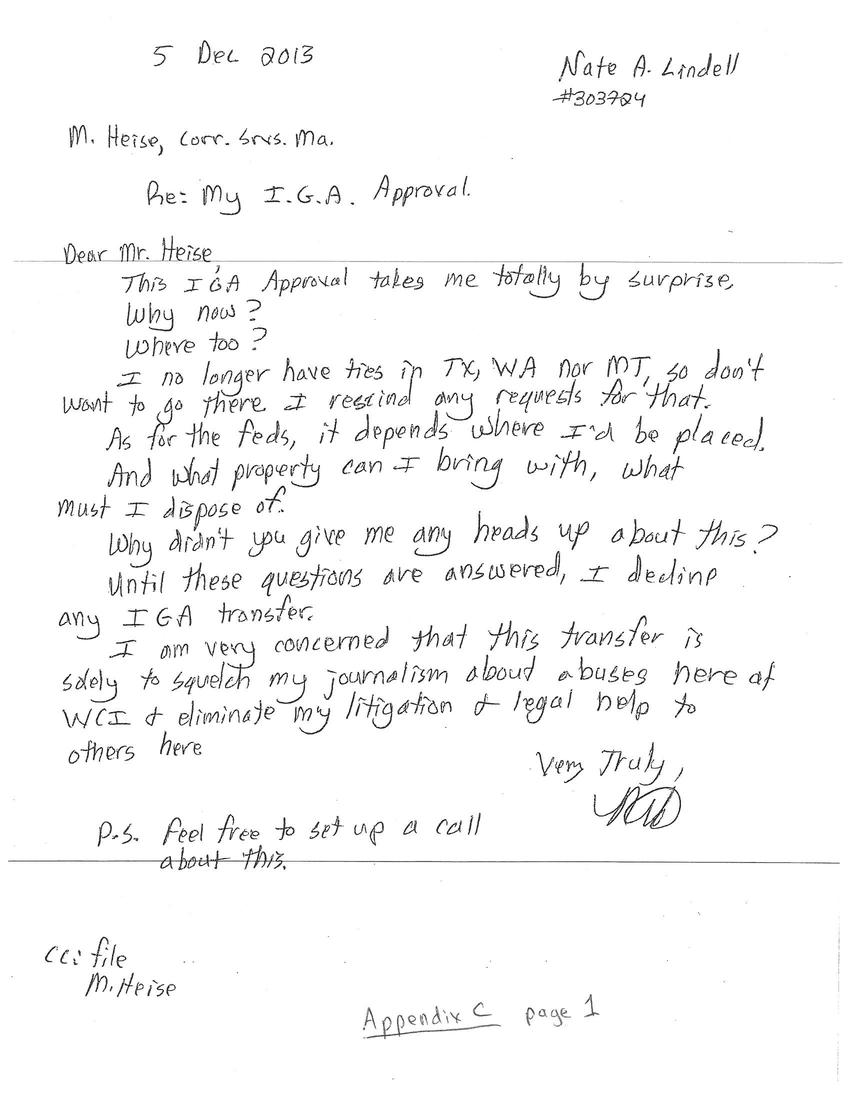 5 Dec 2013
Nate A. Lindell
#303724
M. Heise, Corr. Srvs. Ma.
Re: My I.G.A. Approval.
Dear Mr. Heise,
This IGA Approval takes me totally by surprise,
Why now?
Where too?
I no longer have ties in TX, WA nor MT, so don't
want to go there. I rescind any requests for that.
As for the feds, it depends where I'd be placed.
And what property can I bring with, what
must I dispose of.
Why didn't you give me any heads up about this?
Until these questions are answered, I decline
any IGA transfer.
I am very concerned that this transfer is
solely to squelch my journalism about abuses here at
WCI & eliminate my litigation & legal help to
others here
Very Truly,
P.S. Feel free to set up a call
about this.
cc: file
M. Heise
Appendix C page 1